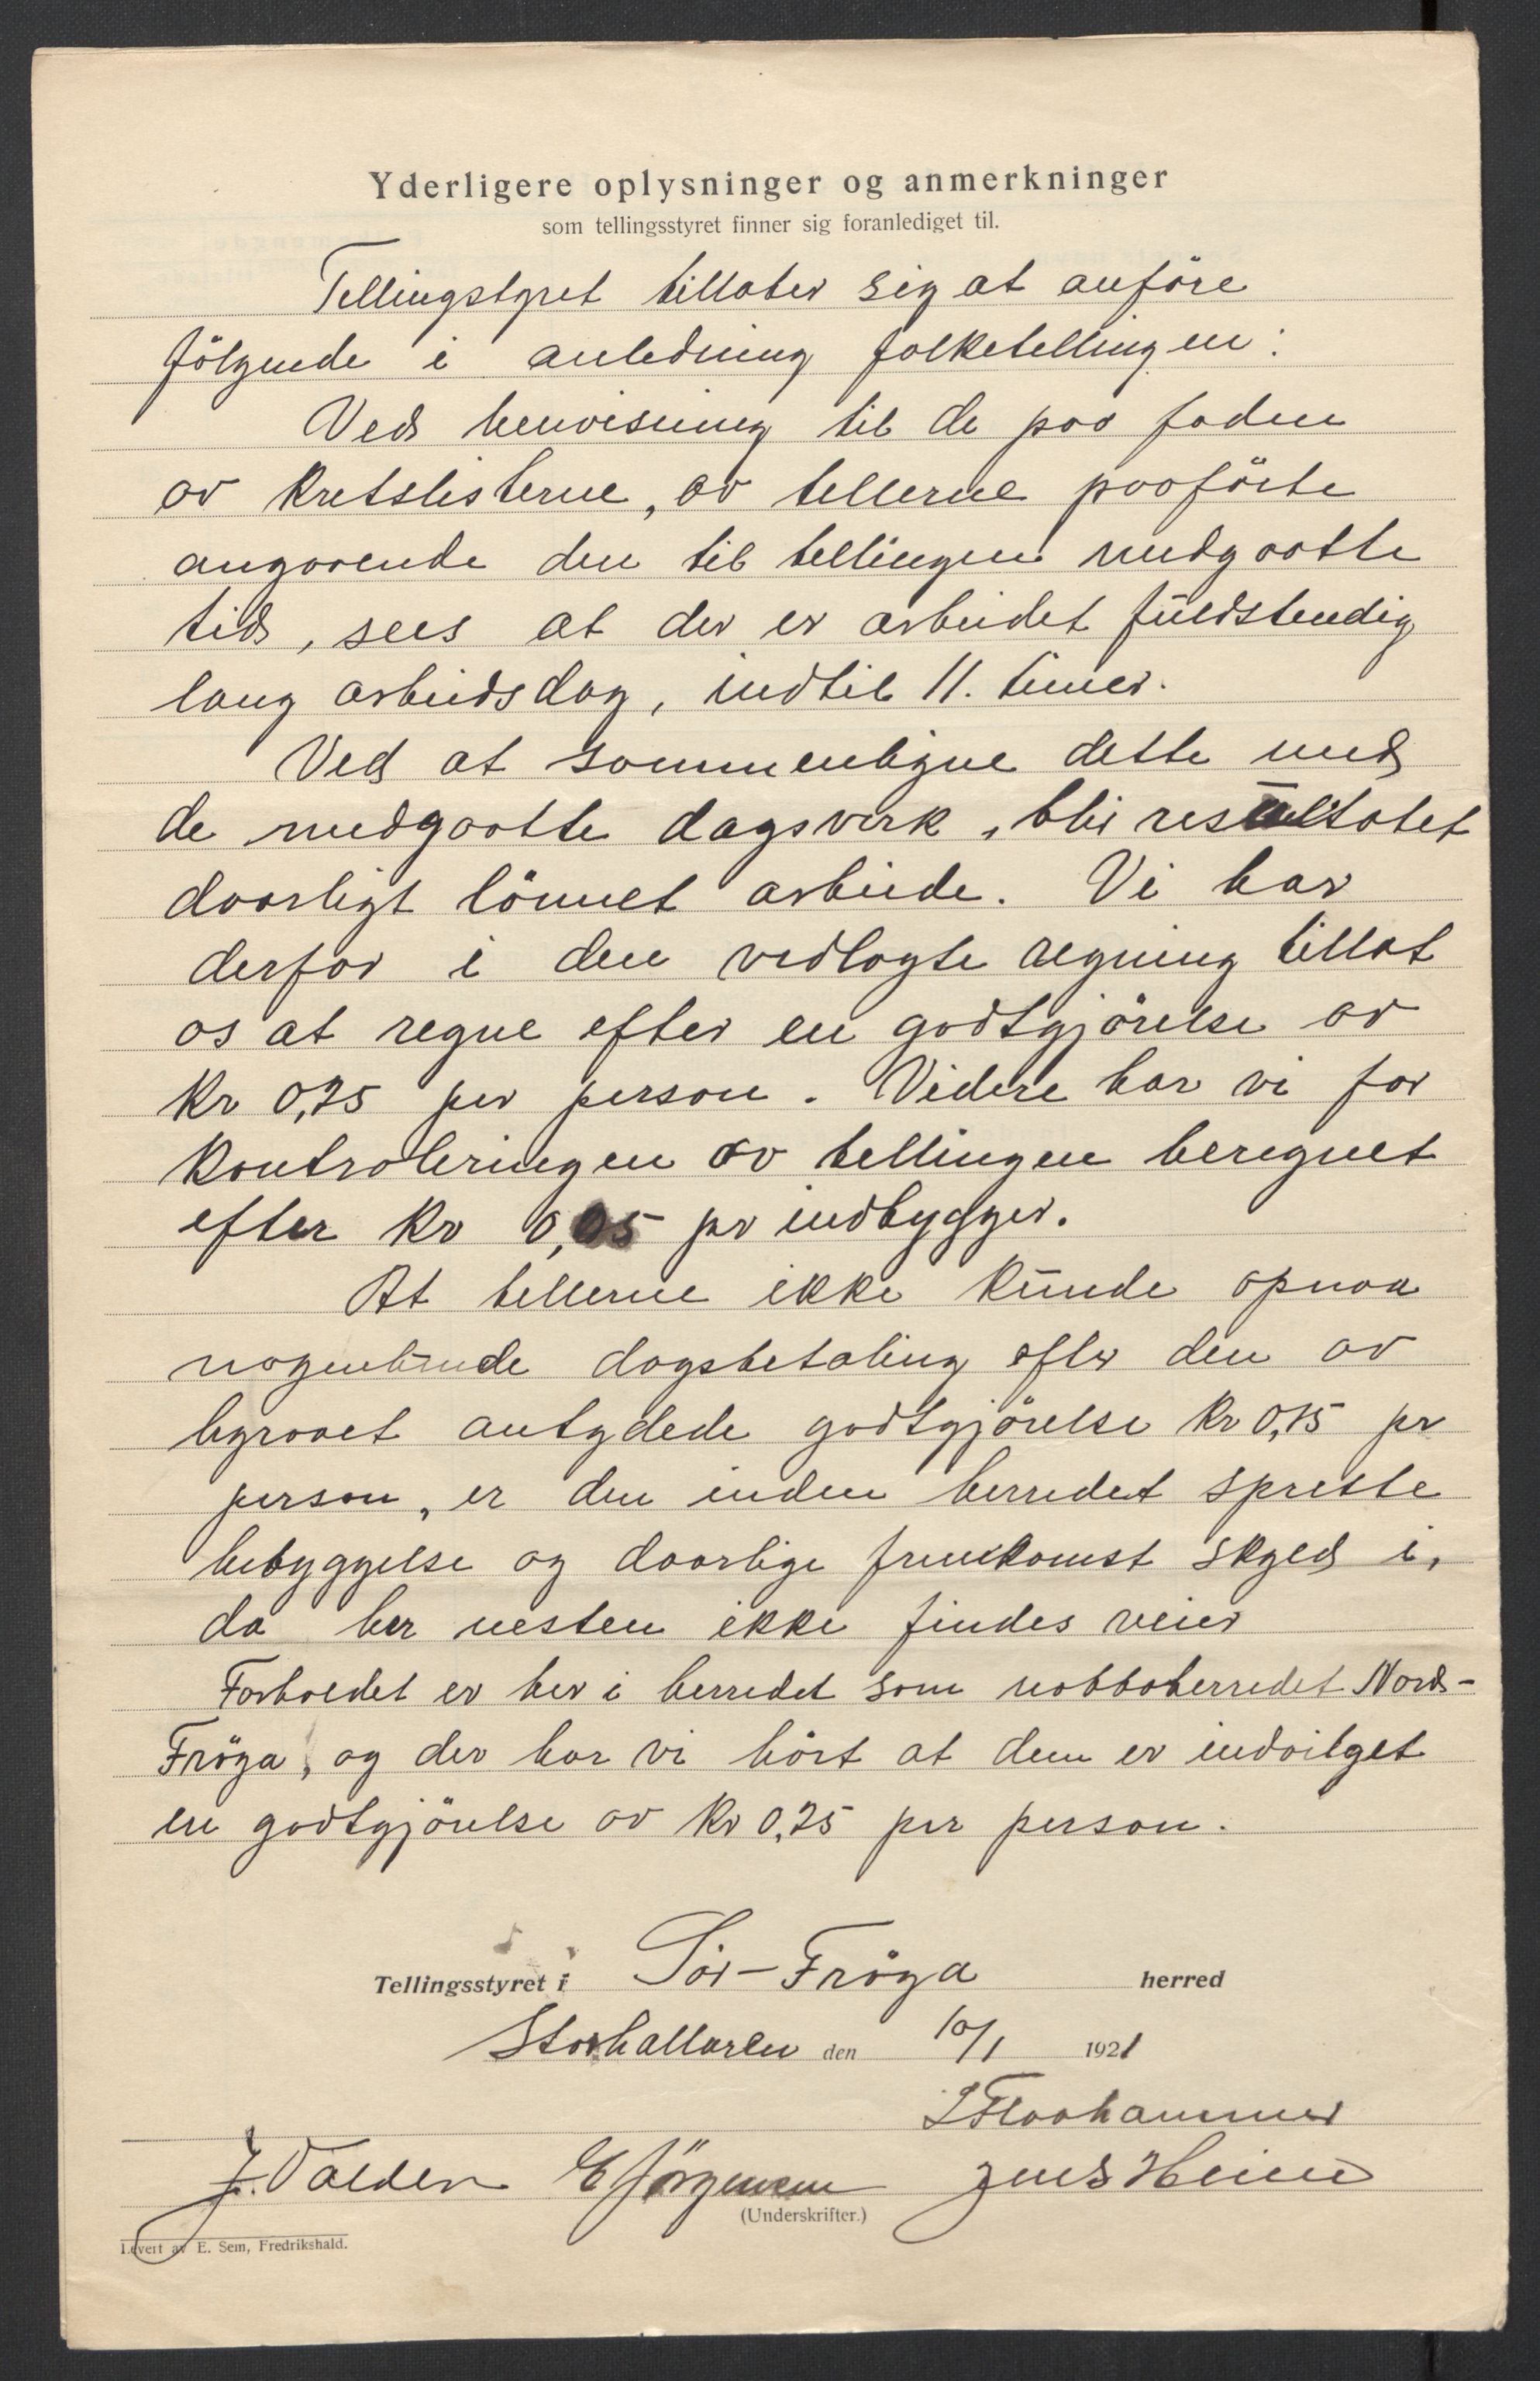 Yderligere oplysninger og anmerkninger
som tellingsstyret finner sig foranlediget til.
Tellingstyret tillater sig at anföre
fölgende i anledning folketellingen:
Ved henvisning til de paa foden
av kretslisterne, av tellerne paaförte
angaaende den til tellingen medgaatte
tid, sees at der er arbeidet fuldstendig
lang arbeidsdag, indtil 11. timer.
Ved at sammenligne dette med
de medgaatte dagsverk, blir resultatet
daarligt lönnet arbeide. Vi har
derfor i den vedlagte regning tillat
os at regne efter en godtgjörelse av
Kr 0,25 per person. Videre har vi for
Kontroleringen av tellingen beregnet
efter Kr 0,05 pr indbygger.
At tellerne ikke kunde opnaa
nogenlunde dagsbetaling efter den av
byraaet antydede godtgjörelse Kr 0,15 pr
person, er den inden herredet spredte
bebyggelse og daarlige fremkomst skyld i,
da her nesten ikke findes veier
Forholdet er her i herredet som naboherredet Nord-
Fröya, og der har vi hört at dem er indvilget
en godtgjörelse av Kr 0,25 per person.
Tellingsstyret i Sör-Fröya herred
Storhallaren den 10/1 1921
J. Valden E Jörgensen Jens Heim
(Underskrifter.)
Levert av E. Sem, Fredrikshald.